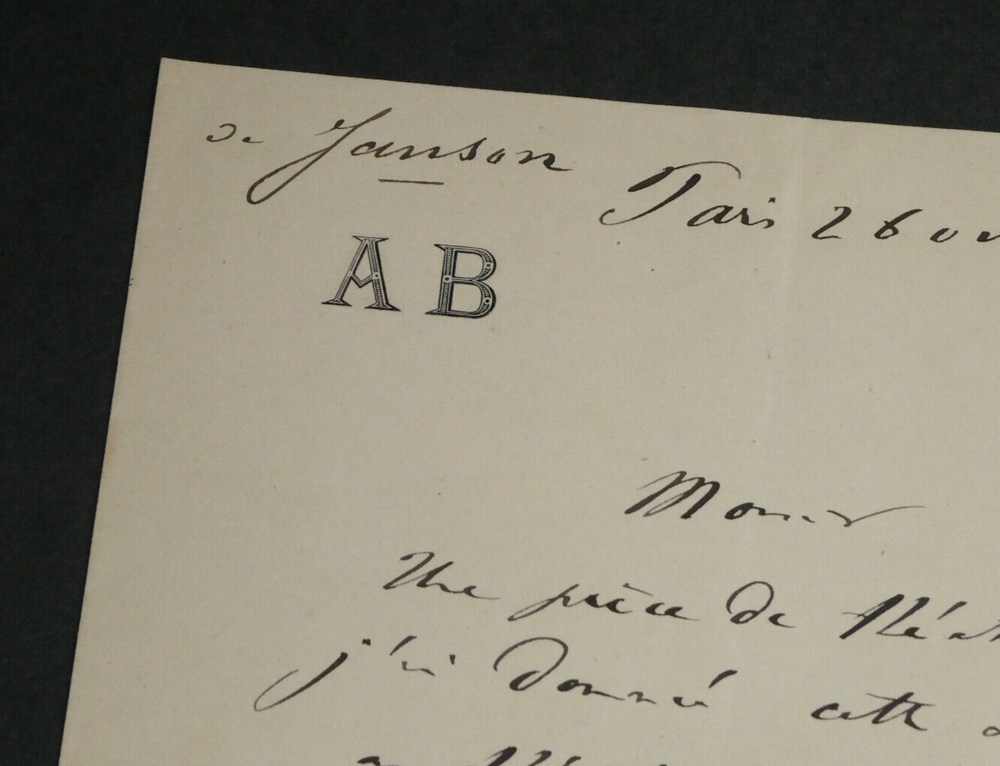 de Janson
Paris 26
A B
Monsieur
Une pièce de
j'ai donné cette